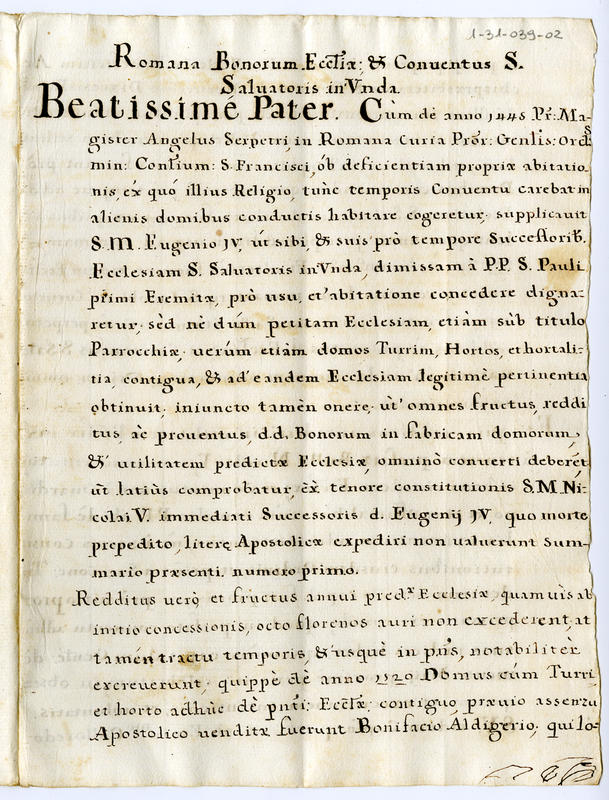 1-31-039-02
Romana Bonorum Eccl̃iæ; & Conuentus S.
Saluatoris in Vnda.
Beatissimé Pater. Cùm dé anno 1445 Pr̃: Ma-
gister Angelus Serpetri, in Romana Curia Proc̃r: Genlis: Ord:
min: Contium: S. Francisci, ob deficientiam propriæ abitatio-
nis, éx quó illius Religio, tunc temporis Conuentu carebat in
alienis domibus conductis habitare cogeretur; supplicauit
S. M. Eugenio IV, út sibi, & suis prò tempore Successorib.
Ecclesiam S. Saluatoris in Vnda, dimissam à P.P. S. Pauli
primi Eremitæ, prò usu, et abitatione concedere digna-
retur; sèd nè dúm petitam Ecclesiam, etiàm sùb titulo
Parrocchiæ; uerúm etiàm domos Turrim, Hortos, et hortali-
tia, contigua, & ad eandem Ecclesiam legitimè pertinentia
obtinuit; iniuncto tamèn onere; út omnes fructus, reddi
tus, ac prouentus, d.d. Bonorum in fabricam domorum,
& utilitatem predictæ Ecclesiæ, omninò conuerti deberet,
út latiùs comprobatur, éx tenore constitutionis S. M. Ni-
colai V. immediati Successoris d. Eugenij IV, quo morte
prepedito, literę Apostolicæ expediri non ualuerunt Sum-
mario præsenti. numero primo.
Redditus uerò et fructus annui pred.æ Ecclesiæ, quamuis ab
initio concessionis, octo florenos auri non excederent, at
tamén tractu temporis, & usquè in pñs, notabiliter
excreuerunt; quippè dè anno 1520 Domus cúm Turri,
et horto adhúc dé pnti: Eccl̃æ: contiguo, præuio assensu
Apostolico uenditæ fuerunt Bonifacio Aldigerio, qui lo-